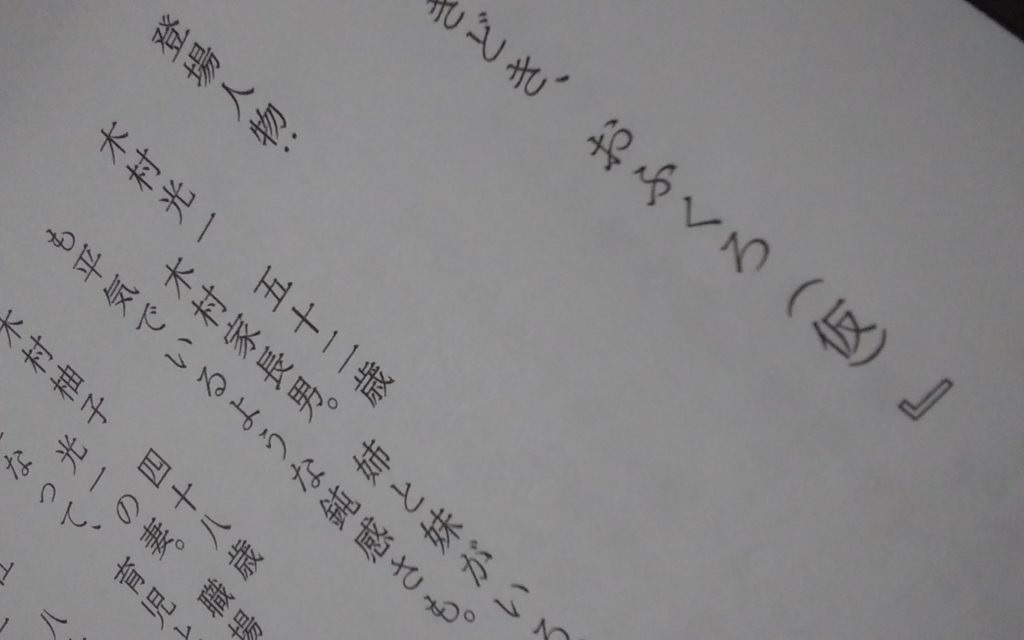 きどき、 おふくろ（仮）』
登場人物．
木村光一 五十二歳
木村家長男。 姉と妹がいる
も平気でいるような鈍感さも。
木村柚子 四十八歳
光一の妻。 職場
なって、 育児と